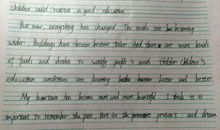 children could receive a good education.
But now, everything has changed. The roads are becoming
wider. Buildings have become taller. And there are more kinds
of foods and drinks to satisfy people's need. children children's
education conditions are becoming better and better.
My hometown has become more and more beautiful. I think it is
important to remember the past, live in the present and dream